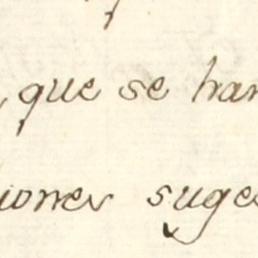 , que se han
iones suge